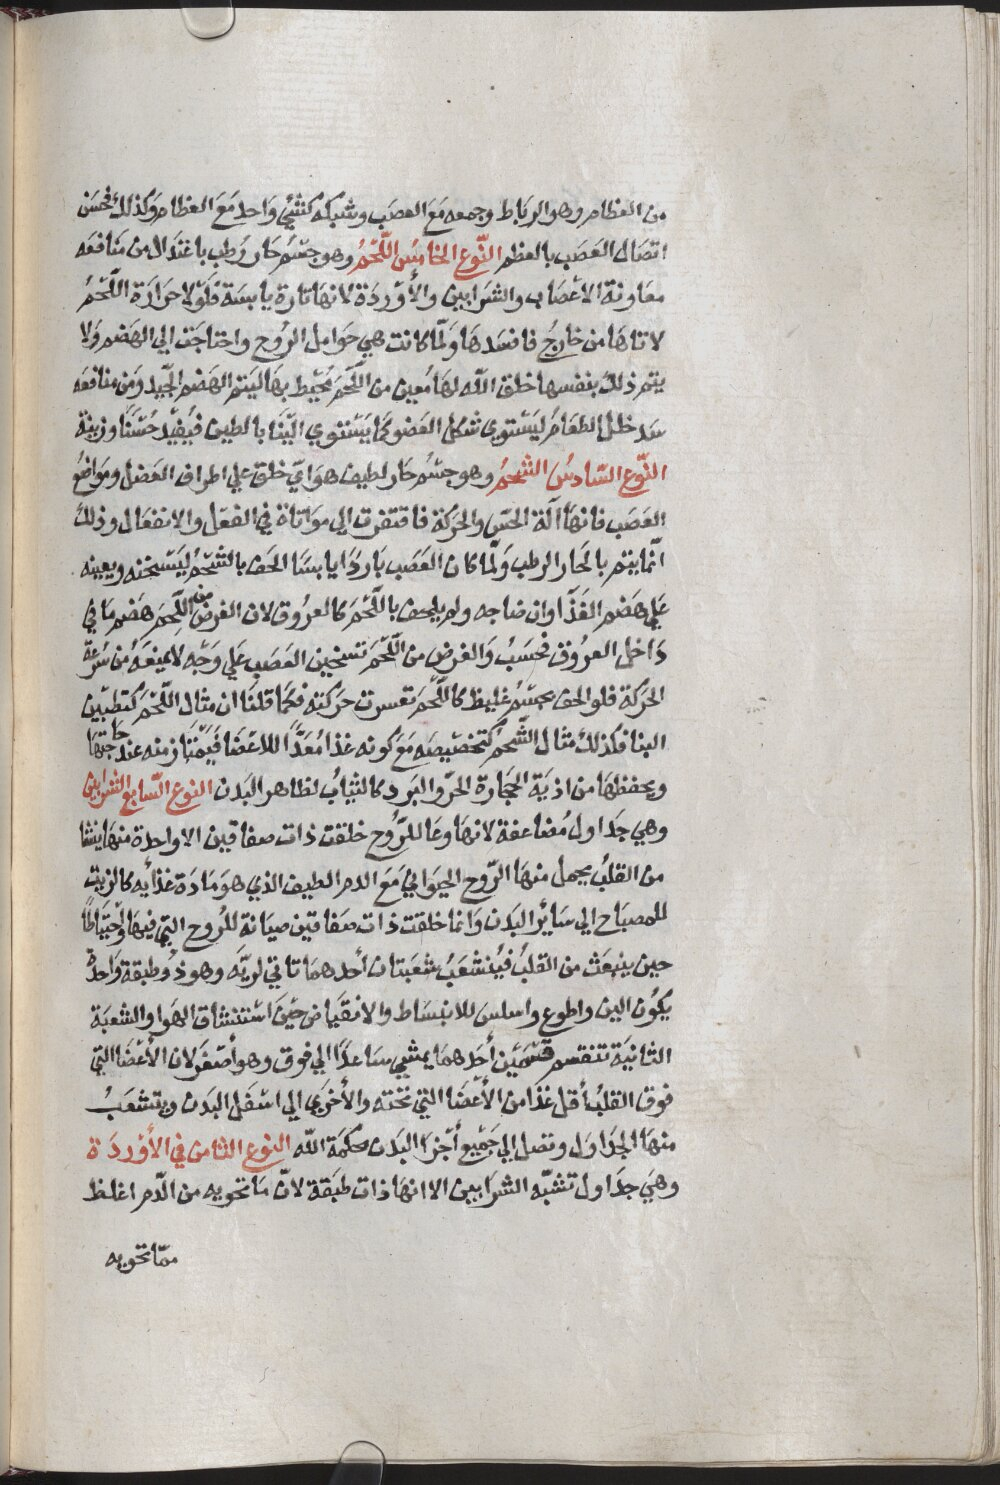 من العظام وهو الرباط وجمعه مع العصب وشبكه كشئي واحد مع العظام وكذلك فحسن
اتصال العصب بالعظم النّوع الخامسُ اللّحمُ وهو جسْم حار وَطب باعتدال من منافعه
معاونة الاعْصاب والشرايين والأوْردَة لانهَا تارة يابسَة فلَوْلا حرارة اللّحمُ
لاتاهَا من خارجُ فافسَدهَا وَلّما كانت هي حَوامل الرُوح واحتاجَت الي الهَضم وَلا
يتم ذلكَ بنفسها خلق اللّه لها مُعين من اللّحمَ مُحيْط بهَا ليَتم الهَضم الجّيد وَمن منافعَه
سَد خلل الطعَامَ ليَسْتوي شكل العَضو كمَا يَسْتوي البّنا بالطين فيُفيْد حُسْنًا وزينة
النّوع السّادسُ الشحمُ وهو جسْم حَار لطيف هوَايّ خلق علي اطراف العَضل ومَواضعُ
العَصَب فانهَا الّة الحسّ والحَركة فافتقرت الي موَاتاة في الفعْل والانفعَال وذلكَ
انّما يتم بالحَار الرطب وَلّما كان العَصَب بَاردَا يابسَا الحَف بالشحْمُ ليَسْخنه ويعينه
عَلي هَضم الغَذَا وانضاجه ولم يلحف باللّحْمَ كالعرُوق لان الغرضُ من اللّحمَ هَضم مَا في
دَاخل العرُوق فحسَبْ وَالغرض من اللّحْمَ تسْخين العَصَب عَلي وَجّه لا يمنعَهُ من سَرعَة
الحرَكة فلو الحف بجسْم غليظ كاللّحمَ تعسرت حرَكته فكمَا قلنَا ان مثال اللّحْمَ كتطبْين
البنا فكذلك مثال الشّحمُ كتخصْيصَه مَعَ كونه غذا مُعَدًّا للاعْضَا فيَمْتَاز منه عند حَاجتهَا
ويحفظهَا من اذيَة الحجَارة الحرّ والبَرد كالثيابُ لظاهر البَدن النوع السّابع الشرايين
وهي جدَاول مُضاعفة لانهَا وعَا للرّوح خلقت ذات صفاقين الا واحدة منهَا ينشا
من القلبُ يحمل منهَا الرّوح الحيَوانيْ مَعَ الدم الطيف الذي هوَ مَادَة غذَايه كالزيت
للمصبَاح الي سَائر البَدن وَانما خلقت ذات صَفاقين صيَانة للرُوح التِي فيهَا وَاحْتيَاطًا
حين ينبعَث من القلبُ فيُنشعَبُ شعَبتان أحدهما تاتي لريّه وهو ذوُ طبقة وَاحدة
يكوُن الين واطوع واسلس للانبسَاط والانقبَاض حيْن اسْتنشَاق الهَوا والشعبَة
الثانيَة تنقسم قسْمَيْن أحدَهمَا يمشي سَاعدًا الي فوق وهو أصْغرَ لان الأعْضَا التِي
فوق القلبُ أقل غذا من الأعْضَا التِي تحْته والأخرَي الي اسْفل البَدن ويتشعَبُ
منهَا الجدَاوَل وتصل الي جَمْيع أجزَا البَدن بحكمَة اللّه النوع الثامن في الأوْردَة
وهيَ جدَاول تشبّه الشرايين الا انهَا ذات طبَقة لانّ مَا تحويه من الّدم اغلظ
ممّا تحويه